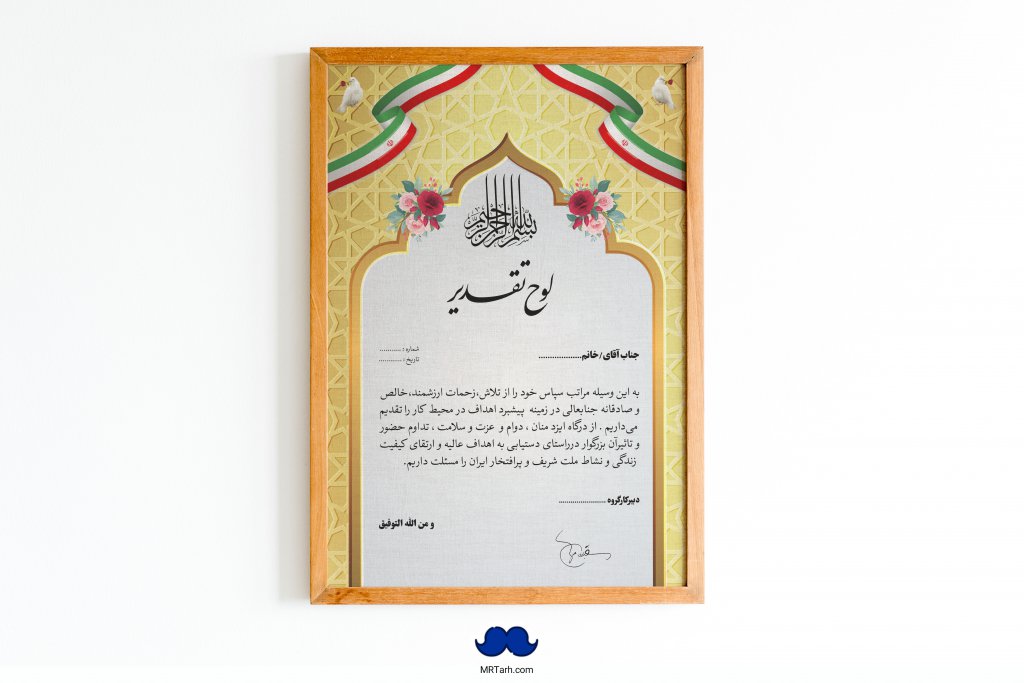 بسم الله الرحمن الرحیم
لوح تقدیر
شماره : ...........
تاریخ : ............
جناب آقای/خانم...................
به این وسیله مراتب سپاس خود را از تلاش،زحمات ارزشمند،خالص
و صادقانه جنابعالی در زمینه پیشبرد اهداف در محیط کار را تقدیم
می‌داریم . از درگاه ایزد منان ، دوام و عزت و سلامت ، تداوم حضور
و تاثیرآن بزرگوار درراستای دستیابی به اهداف عالیه و ارتقای کیفیت
زندگی و نشاط ملت شریف و پرافتخار ایران را مسئلت داریم.
دبیرکارگروه ......................
و من الله التوفیق
MRTarh.com